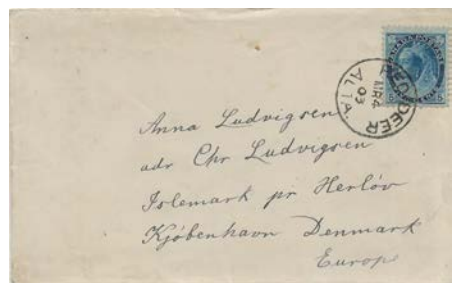 CANADA POSTAGE
RED DEER
MR 4
03
ALTA.
Anna Ludvigsen
adr Chr Ludvigsen
Islemark pr Herlöv
Kjöbenhavn Denmark
Europe